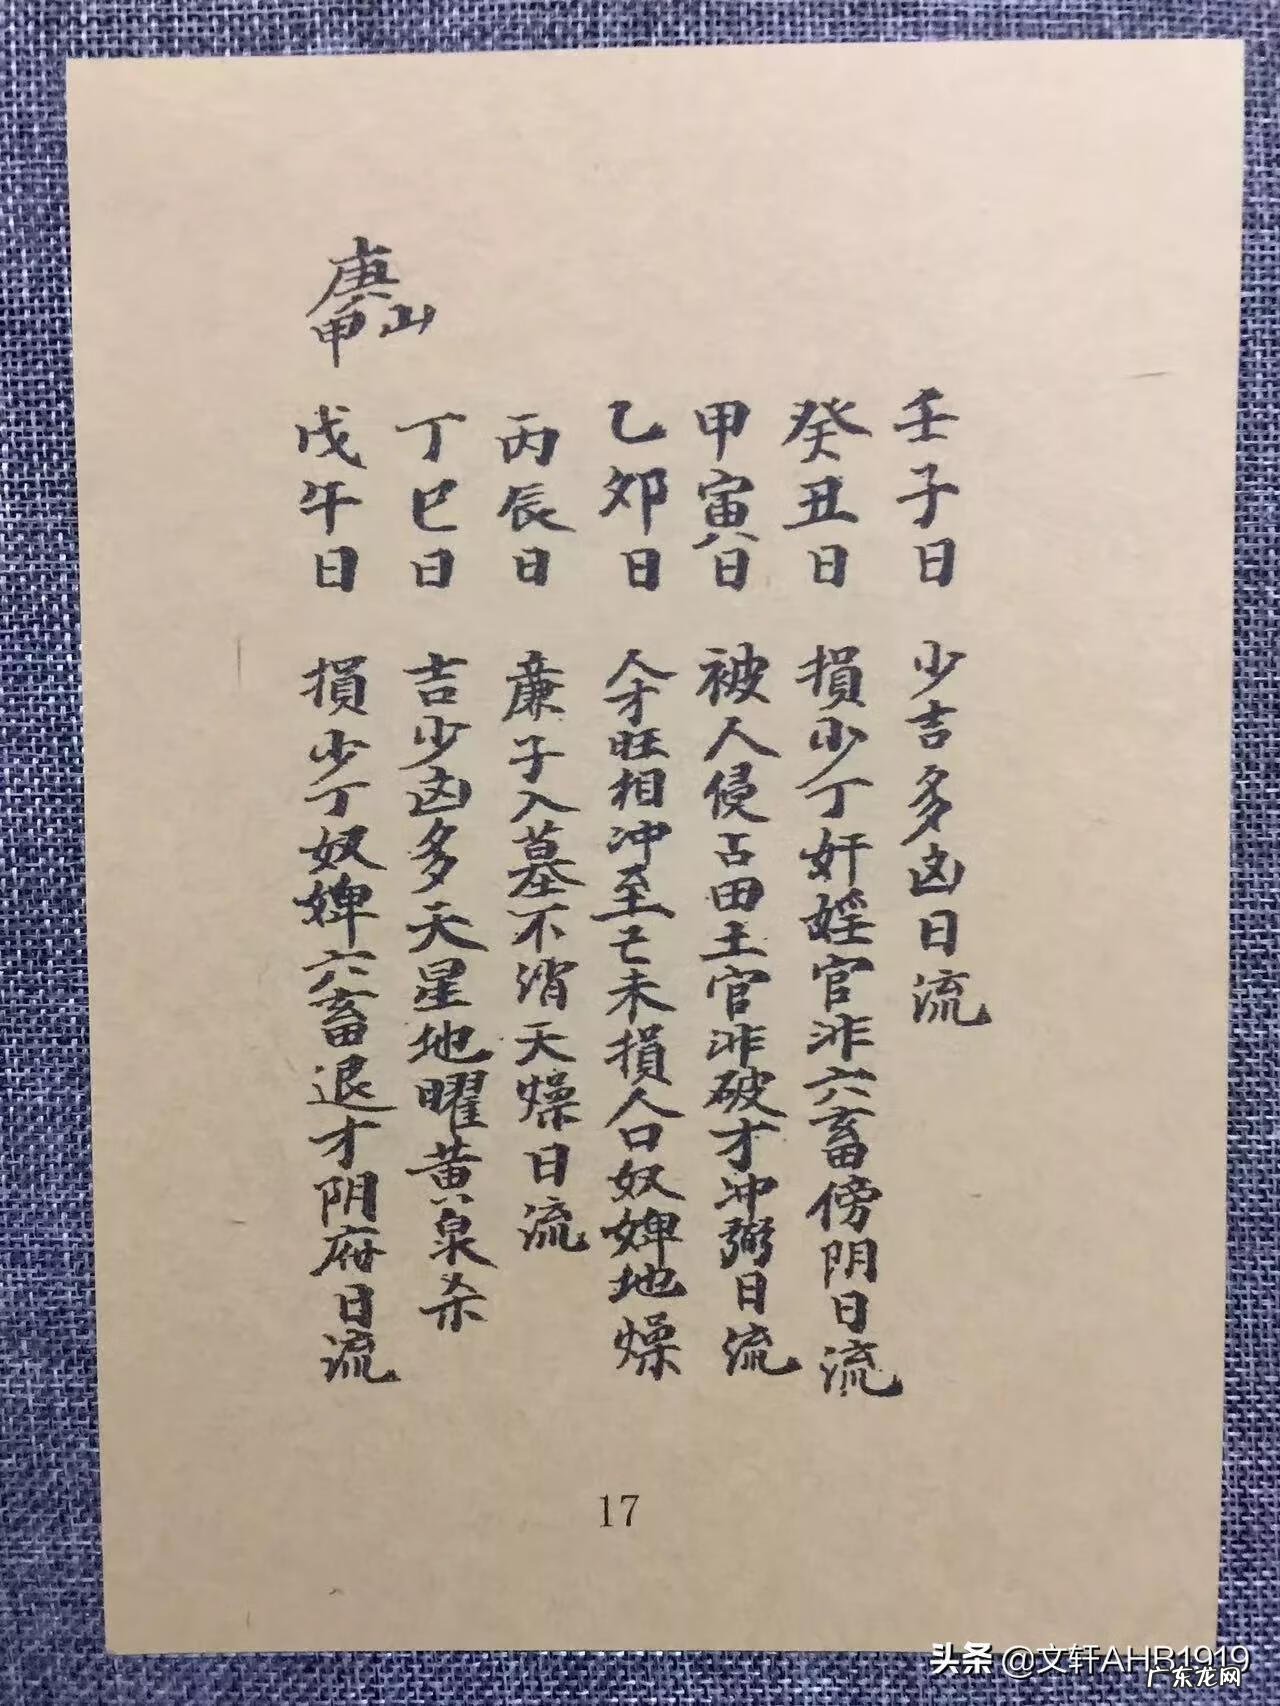 壬子日 少吉多凶日流
癸丑日 損少丁奸婬官非六畜傍阴日流
甲寅日 被人侵占田土官非破才冲 日流
乙卯日 人才旺相冲至亡未損人口奴婢地燥
丙辰日 廉子入墓不消天燥日流
丁巳日 吉少凶多天星地曜黄泉杀
戊午日 損少丁奴婢六畜退才阴府日流
庚甲山
17
头条 @文轩AHB1919
广东龙网